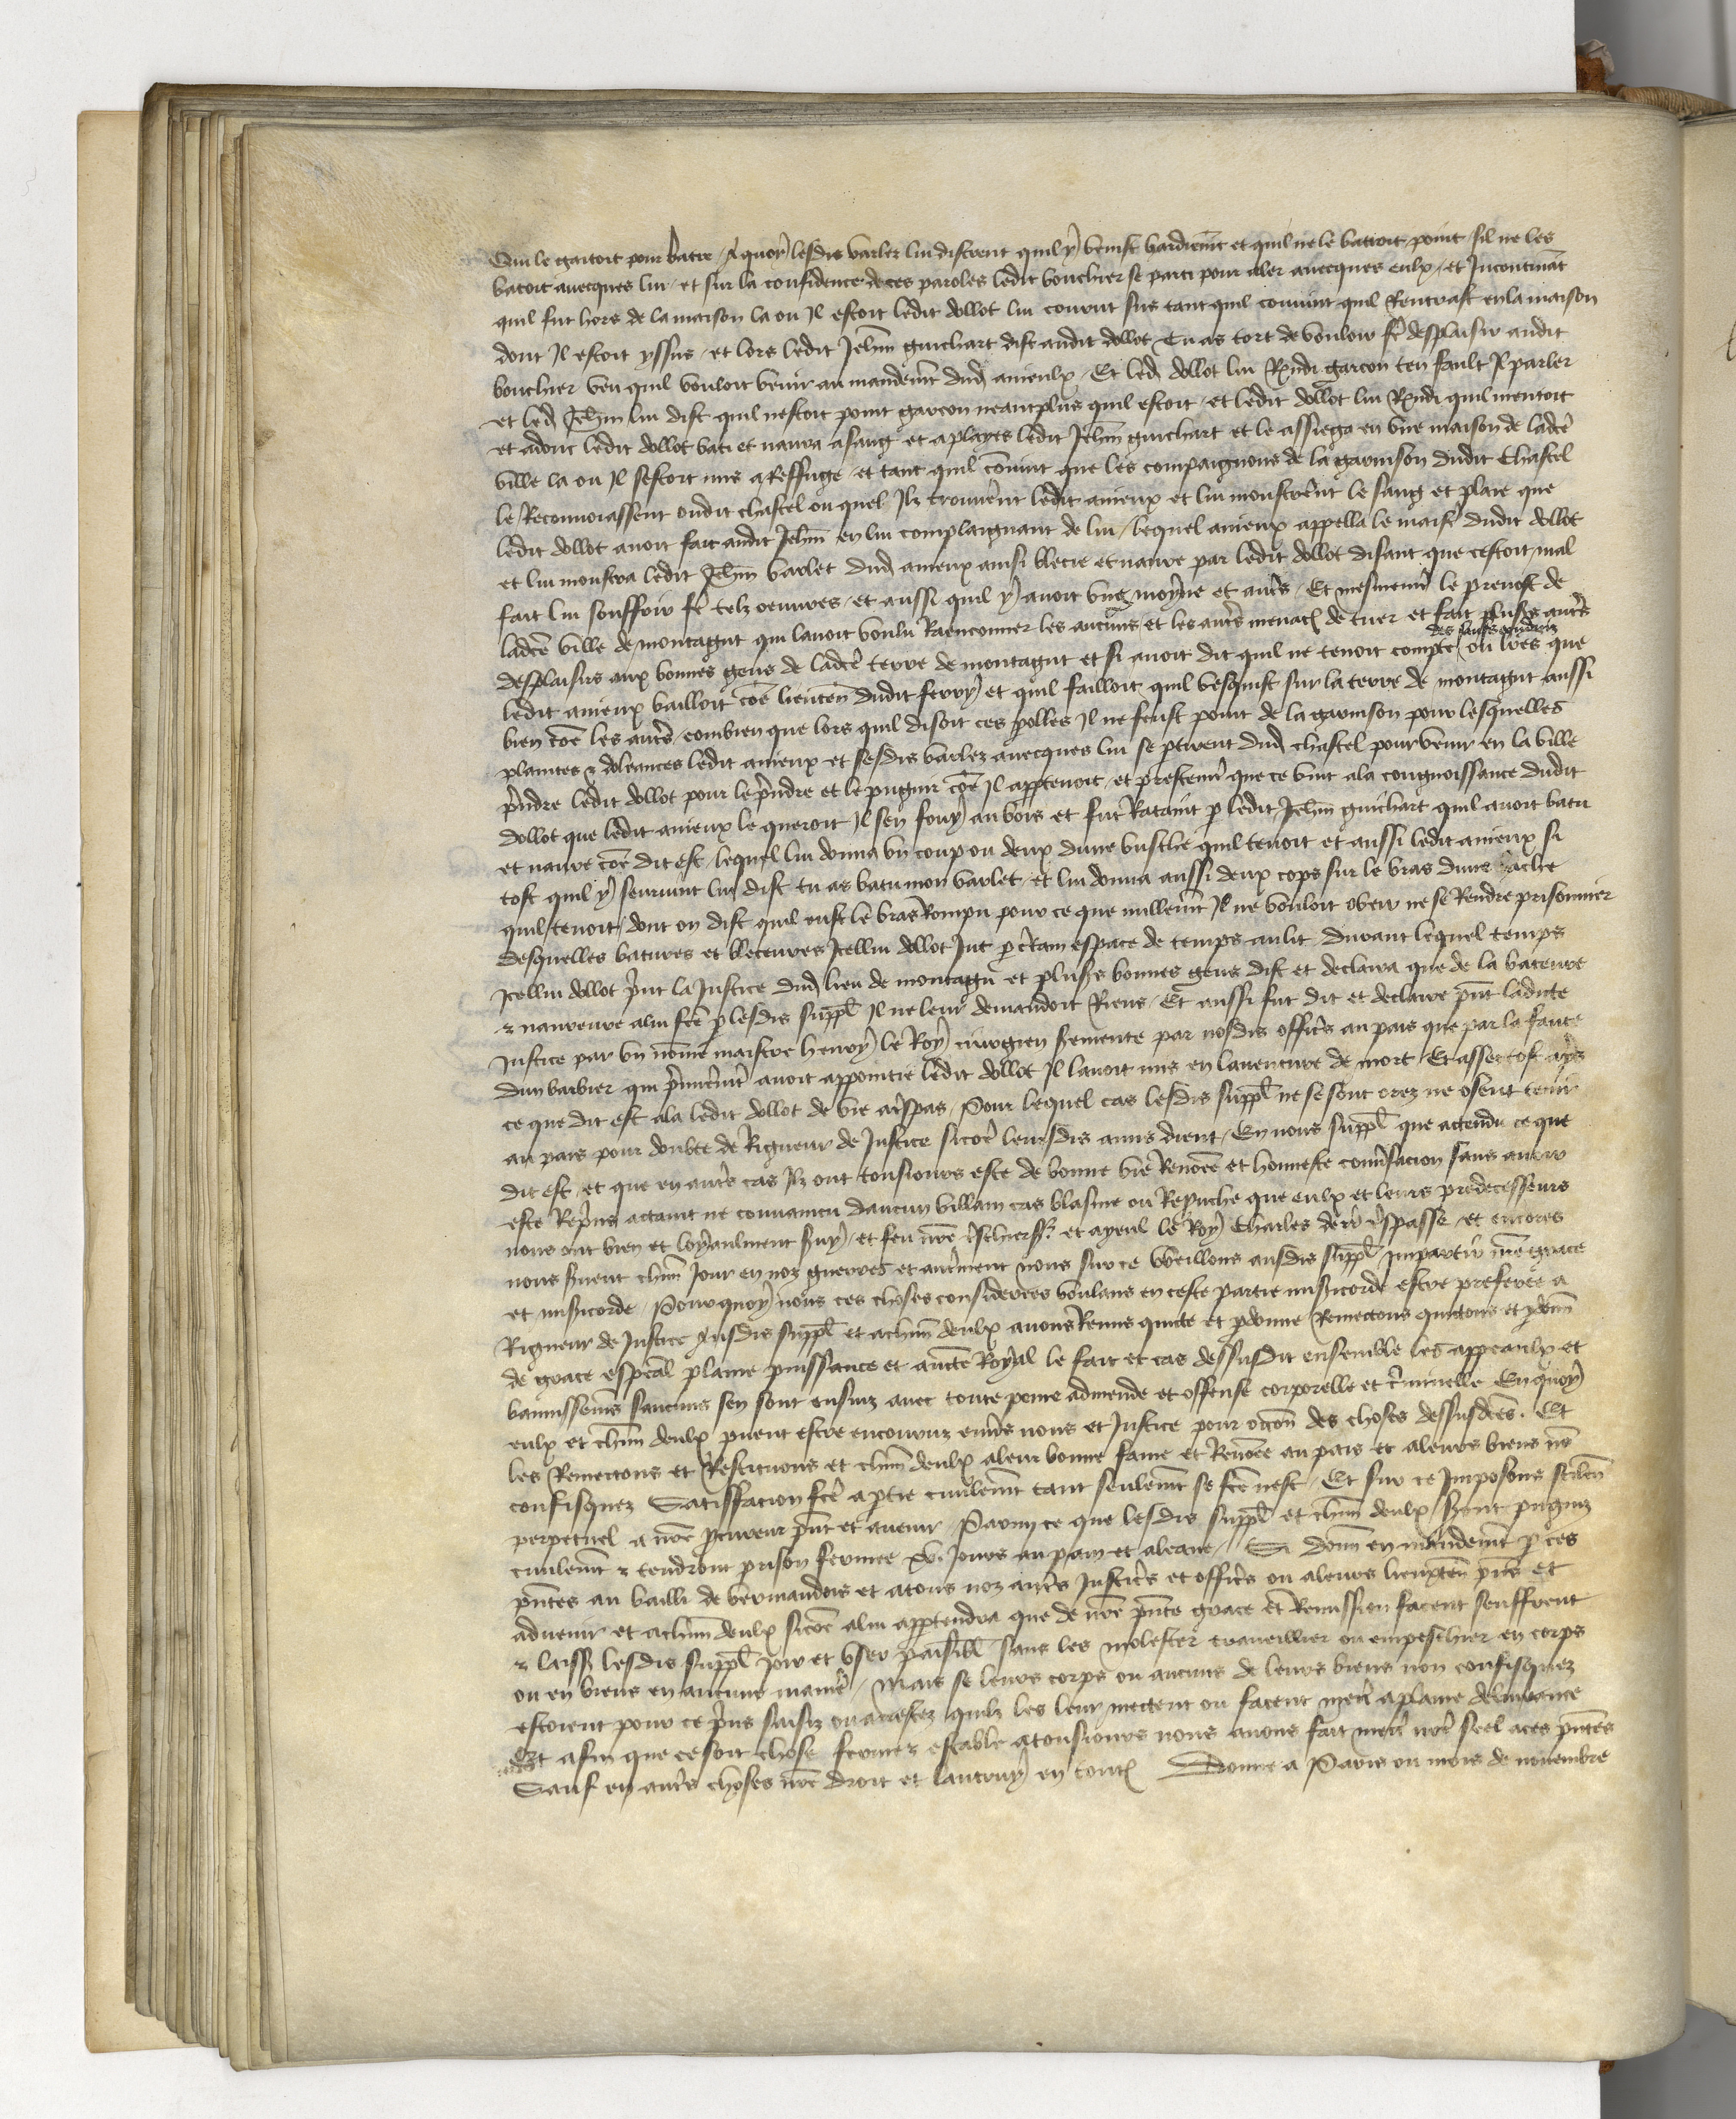 Qui le gaitoit pour batre / A quoy lesdis varlez lui disrent quil y venist hardiemt et quil ne le batroit point / sil ne les
batoit avecques lui / et sur la confidence de ces paroles ledit bouchier se parti pour aler avecques eulx / et Incontinat
quil fut hors de la maison la ou Il estoit ledit dollot lui courut sus tant quil convint quil Rentrast en la maison
dont Il estoit yssus / et lors ledit Jehn guichart dist audit dollot Tu as tort de vouloir fe desplaisir audit
bouchier veu quil vouloit venir au mandemt dud amieulx / Et led dollot lui Rndi garcon ten fault Il parler
et led Jehn lui dist quil nestoit point garcon neantplus quil estoit / et ledit dollot lui Rndi quil mentoit
et adonc ledit dollot bati et navra a sang et a playes ledit Jehn guichart et le assiega en une maison de ladce
ville la ou Il sestoit mis a Reffuge et tant quil covint que les compaignons de la garnison dudit Chastel
le Reconvoiassent oudit chastel ou quel Ilz trouverent ledit amieux et lui monstrent le sang et plaie que
ledit dollot avoit fait audit Jehn en lui complaignant de lui / lequel amieux appella le maist dudit dollot
et lui monstra ledit Jehn varlet dud amieux ainsi blecie et navre par ledit dollot disant que cestoit mal
fait lui souffrir fe telz oeuvres / et aussi quil y avoit ung moyne et autrs / Et mesmemt le prevost de
ladce ville de montagut qui lavoit voulu Raenconner les aucuns et les autrs menac de tuer et fait plusrs autrs
desplaisirs aux bonnes gens de ladce terre de montagut et si avoit dit quil ne tenoit compte des saufs conduiz ou lres que
ledit amieux bailloit coe lieuten dudit ferry et quil failloit quil vesquist sur la terre de montagut aussi
bien coe les autrs / combien que lors quil disoit ces polles Il ne feust point de la garnison pour lesquelles
plaintes z doleances ledit amieux et sesdis varlez avecques lui se ptirent dud chastel pour venir en la ville
prndre ledit dollot pour le prndre et le pugnir coe Il appartenoit / et prestemt que ce vint a la congnoissance dudit
dollot que ledit amieux le queroit Il sen fouy au bois et fut Rataint p ledit Jehn guichart quil avoit batu
et navre coe dit est / lequel lui donna un coup ou deux dune busche quil tenoit et aussi ledit amieux si
tost quil y seurvint lui dist tu as batu mon varlet / et lui donna aussi deux cops sur le bras dune hache
quil tenoit / dont on dist quil eust le bras Rompu pour ce que nullemt Il ne vouloit obeir ne se Rendre prisonnier
desquelles batures et bleceures Icellui dollot Jut p crtain espace de temps au lit / durant lequel temps
Icellui dollot prnt la Justice dud lieu de montagu et plusrs bonnes gens dist et declaira que de la bateure
z navreure a lui fce p lesdis suppl Il ne leur demandoit Riens / Et aussi fut dit et declaire prnt ladicte
Justice par un nomme maistre henry le Roy cirurgien sermente par nosdis offices au pais que par la faute
dun barbier qui primierment avoit appointie ledit dollot Il lavoit mis en laventure de mort / Et assez tost aprs
ce que dit est ala ledit dollot de vie a trspas / Pour lequel cas lesdis suppl ne se sont osez ne osent tenir
au pais pour doubte de Rigueur de Justice sicoe leursdis amis dient / En nous suppl que actendu ce que
dit est / et que en autrs cas Ilz ont tousiours este de bonne vie Renomee et honneste convrsacion sans avoir
este Reprins actaint ne convaincu daucun villain cas blasme ou Reprouche que eulx et leurs predecesseurs
nous ont bien et loyaulment srvy / et feu nre treschier sr et ayeul le Roy Charles derr trspasse / et encores
nous srvent chun Jour en noz guerres et autrment nous sur ce weillons ausdis suppl Impartir nre grace
et misricorde / Pourquoy nous ces choses considerees voulans en ceste partie misricorde estre preferee a
Rigueur de Justice Ausdis suppl et a chun deulx avons Remis quicte et pdonne Remectons quictons et pdonn
de grace especial plaine puissance et aucte Royal le fait et cas dessusdit ensemble les appeaulx et
bannissemes saucuns sen sont ensuiz avec toute peine admende et offense corporelle et criminelle En quoy
eulx et chun deulx puent estre encouruz envrs nous et Justice pour occon des choses dessusdces. Et
les Remectons et Restituons et chun deulx a leur bonne fame et Renomee au pais et a leurs biens no
confisquez Satisfacion fce a ptie civilemt tant seulemt se fce nest / Et sur ce Imposons silen
perpetuel a nre procureur prnt et avenir / Parmy ce que lesdis suppl et chun deulx sront pugniz
civilemt z tendront prison fermee xv. jours au pain et a leaue / Si donn en mandemt p ces
pntes au bailli de vermandois et a tous noz autrs Justicrs et officrs ou a leurs lieuxten prns et
advenir et a chun deulx sicoe a lui appartendra que de nre pnte grace et Remission facent seuffrent
z laissr lesdis suppl joir et user paisibl sans les molester traveillier ou empeschier en corps
ou en biens en aucune maniere / Mais se leurs corps ou aucuns de leurs biens non confisquez
estoient pour ce prins saisiz ou arrestez quilz les leur mectent ou facent mectre a plaine delivrance
Et afin que ce soit chose ferme z estable a tousiours nous avons fait mectr nre seel a ces pntes
Sauf en autrs choses nre droit et lautruy en tout Donne a Paris ou mois de novembre